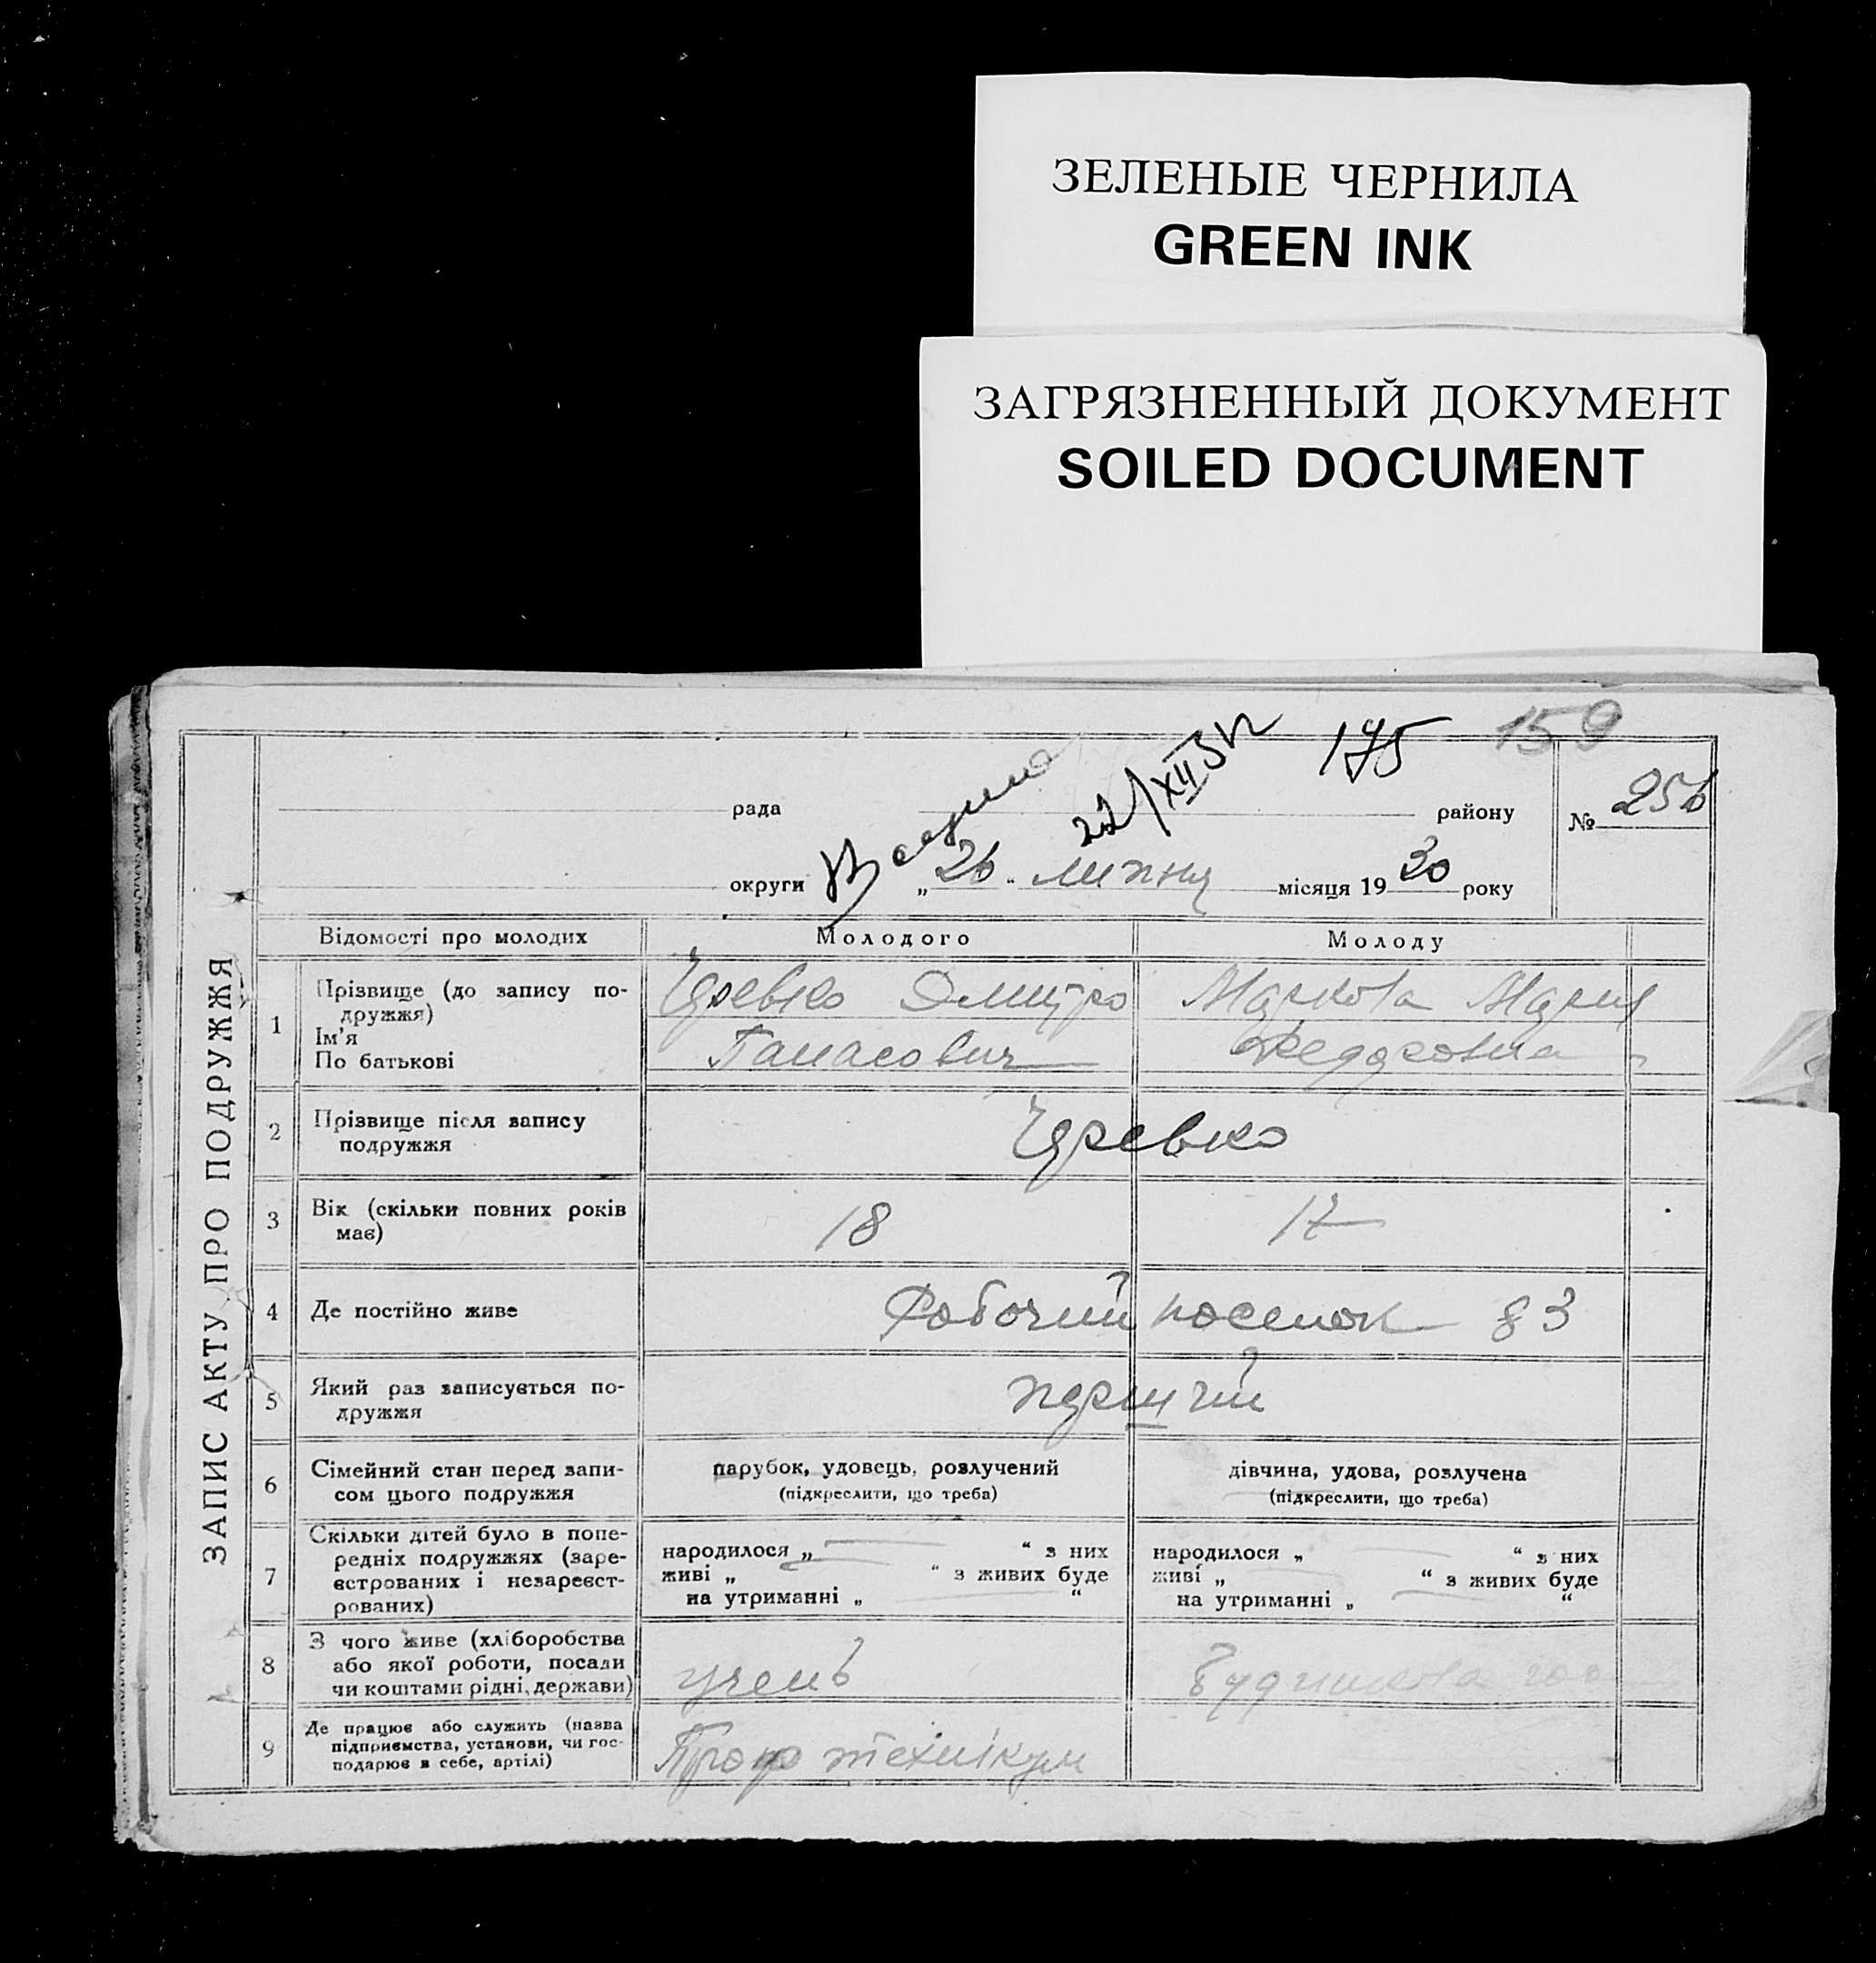 ЗЕЛЕНЫЕ ЧЕРНИЛА
GREEN INK
ЗАГРЯЗНЕННЫЙ ДОКУМЕНТ
SOILED DOCUMENT
175 159
22/XII
рада району № 256
округи „26“ липня місяця 1930 року
ЗАПИС АКТУ ПРО ПОДРУЖЖЯ
Відомості про молодих Молодого Молоду
1 Прізвище (до запису подружжя)
Ім'я
По батькові
Черевко Дмитро
Панасович
Маркова Мария
Федоровна
2 Прізвище після запису
подружжя
Черевко
3 Вік (скільки повних років
має)
18 17
4 Де постійно живе
Рабочий поселок 83
5 Який раз записується по-
дружжя
перший
6 Сімейний стан перед запи-
сом цього подружжя
парубок, удовець, розлучений
(підкреслити, що треба)
дівчина, удова, розлучена
(підкреслити, що треба)
7 Скільки дітей було в попе-
редніх подружжях (заре-
єстрованих і незареєст-
рованих)
народилося „ “ з них
живі „ “ з живих буде
на утриманні „ “
народилося „ “ з них
живі „ “ з живих буде
на утриманні „ “
8 З чого живе (хліборобства
або якої роботи, посади
чи коштами рідні, держави)
учень
9 Де працює або служить (назва
підприємства, установи, чи гос-
подарює в себе, артілі)
Проф технікум